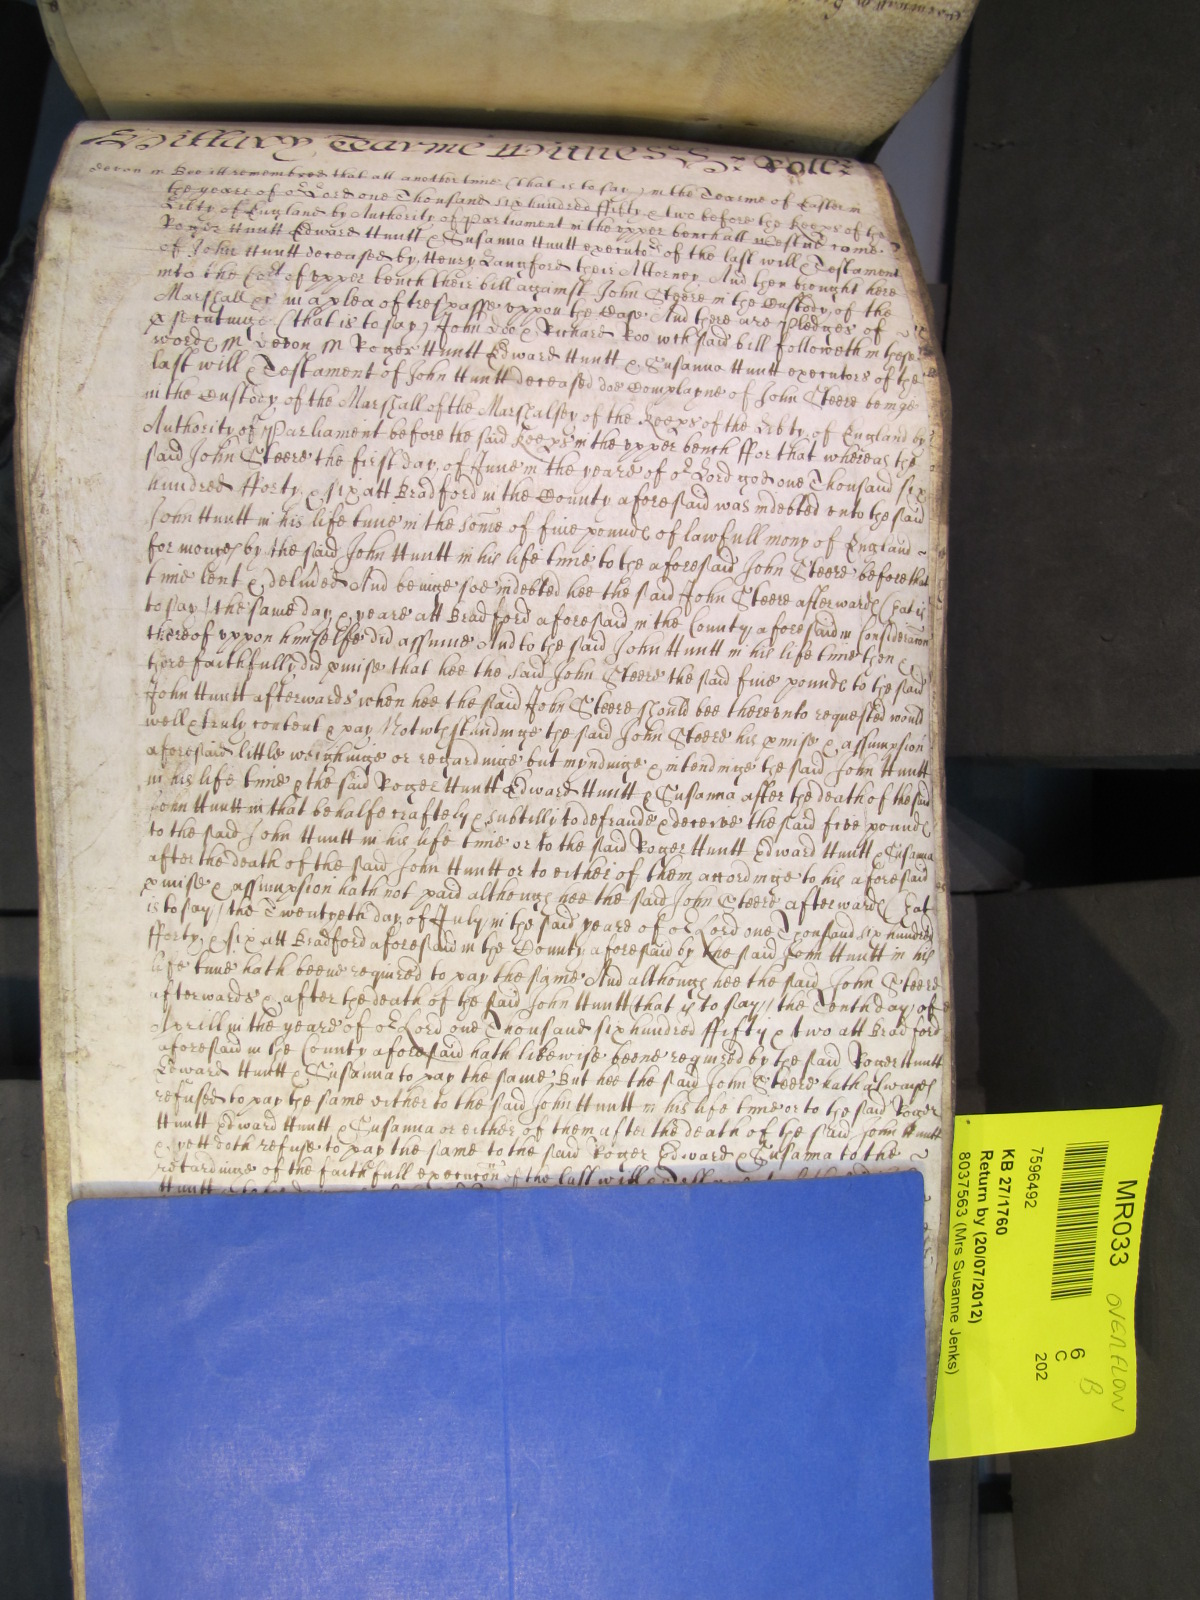 Hillary Tearme
Devon ss Bee itt remembred that all another time (that is to say) in the Tearme of Easter in
the yeare of or Lord one Thousand six hundred fifty & two before the Keeprs of the
Libty of England by Authority of Parliament in the upper bench att Westmr came
Roger Huntt Edward Huntt & Susanna Huntt executors of the last will & Testament
of John Huntt deceased by Henry Langford their Attorney And then brought here
into the Cort of upper bench their bill against John Steere in the Custody of the
Marshall &c in a plea of trespasse uppon the Case And there are pledges of
psecutinge (that is to say) John Doe & Richard Roo wch said bill followeth in these
words ss Devon ss Roger Huntt Edward Huntt & Susanna Huntt executors of the
last will & Testament of John Huntt deceased doe Complayne of John Steere beinge
in the Custody of the Marshall of the Marshalsey of the Keeprs of the Libty of England by
Authority of Parliament before the said Keeprs in the upper bench ffor that whereas the
said John Steere the first day of June in the yeare of or Lord god one Thousand six
hundred fforty & six att Bradford in the County aforesaid was indebted unto the said
John Huntt in his life time in the some of five pounds of lawfull mony of England
for moneys by the said John Huntt in his life time to the aforesaid John Steere before that
time lent & delivred And beinge soe indebted hee the said John Steere afterwards (that is
to say) the same day & yeare att Bradford aforesaid in the County aforesaid in Consideracon
thereof uppon himselfe did assume And to the said John Huntt in his life time then &
there faithfully did pmise that hee the said John Steere the said five pounds to the said
John Huntt afterwards when hee the said John Steere should bee thereunto requested would
well & truly content & pay Notwthstandinge the said John Steere his pmise & assumpsion
aforesaid little weighinge or regardinge but myndinge & intendinge the said John Huntt
in his life time & the said Roger Huntt Edward Huntt & Susanna after the death of the said
John Huntt in that behalfe craftely & subtilly to defraude & deceive the said five pounds
to the said John Huntt in his life time or to the said Roger Huntt Edward Huntt & Susanna
after the death of the said John Huntt or to either of them accordinge to his aforesaid
pmise & assumpsion hath not paid although hee the said John Steere afterwards (that
is to say) the Twentyeth day of July in the said yeare of or Lord one Thousand six hundred
fforty & six att Bradford aforesaid in the County aforesaid by the said John Huntt in his
life time hath beene required to pay the same And although hee the said John Steere
afterwards & after the death of the said John Huntt (that is to say) the Tenth day of
Aprill in the yeare of or Lord one Thousand six hundred ffifty & two att Bradford
aforesaid in the County aforesaid hath likewise beene required by the said Roger Huntt
Edward Huntt & Susanna to pay the same But hee the said John Steere hath alwayes
refused to pay the same either to the said John Huntt in his life time or to the said Roger
Huntt Edward Huntt & Susanna or either of them after the death of the said John Huntt
& yett doth refuse to pay the same to the said Roger Edward & Susanna to the
retardinge of the faithfull execucon of the last will & Testament
MR033
OVERFLOW
6 B
C
202
7596492
KB 27/1760
Return by (20/07/2012)
8037563 (Mrs Susanne Jenks)